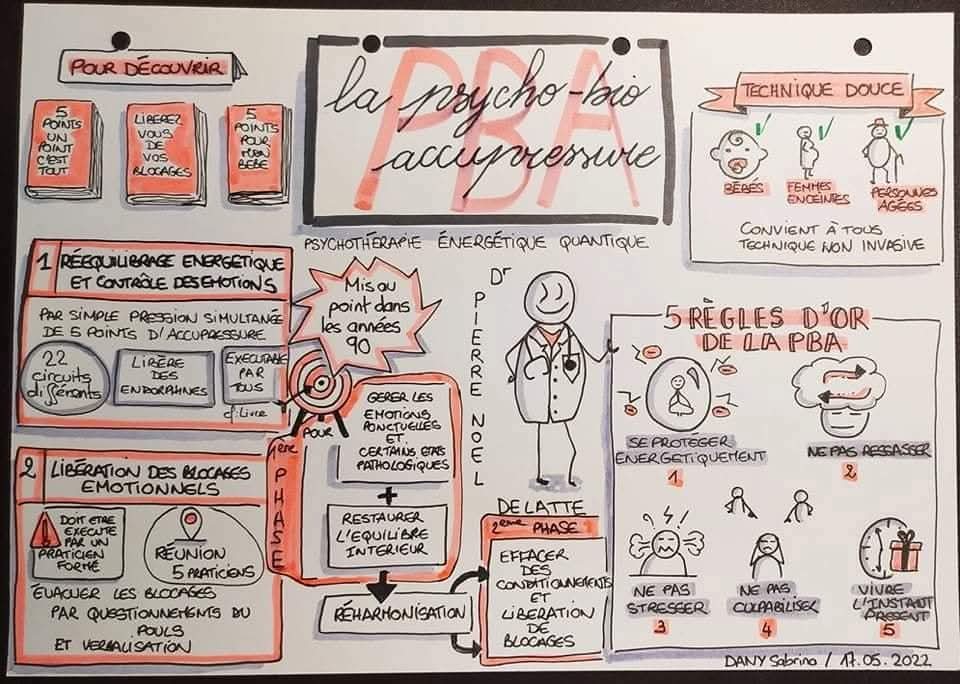 POUR DÉCOUVRIR
5
POINTS
UN
POINT
C'EST
TOUT
LIBEREZ
VOUS
DE
VOS
BLOCAGES
5
POINTS
POUR
MON
BEBE
PBA
la psycho-bio
accupressure
PSYCHOTHÉRAPIE ÉNERGÉTIQUE QUANTIQUE
TECHNIQUE DOUCE
BÉBÉS
FEMMES
ENCEINTES
PERSONNES
AGÉES
CONVIENT À TOUS
TECHNIQUE NON INVASIVE
1 RÉÉQUILIBRAGE ENERGÉTIQUE
ET CONTRÔLE DES EMOTIONS
PAR SIMPLE PRESSION SIMULTANÉE
DE 5 POINTS D'ACCUPRESSURE
22
circuits
différents
LIBÈRE
DES
ENDORPHINES
EXECUTABLE
PAR
TOUS
cf. Livre
Mis au
point dans
les années
90
POUR
1ère PHASE
GERER LES
EMOTIONS
PONCTUELLES
ET
CERTAINS ETATS
PATHOLOGIQUES
+
RESTAURER
L'EQUILIBRE
INTERIEUR
RÉHARMONISATION
Dr
PIERRE NOEL
DELATTE
2ème PHASE
EFFACER
DES
CONDITIONNEMENTS
ET
LIBERATION
DE
BLOCAGES
2 LIBÉRATION DES BLOCAGES
EMOTIONNELS
DOIT ETRE
EXECUTE
PAR UN
PRATICIEN
FORMÉ
RÉUNION
5 PRATICIENS
ÉVACUER LES BLOCAGES
PAR QUESTIONNEMENTS DU
POULS
ET VERBALISATION
5 RÈGLES D'OR
DE LA PBA
SE PROTEGER
ENERGETIQUEMENT
1
NE PAS RESSASSER
2
NE PAS
STRESSER
3
NE PAS
CULPABILISER
4
VIVRE
L'INSTANT
PRESENT
5
DANY Sabrina / 17.05.2022